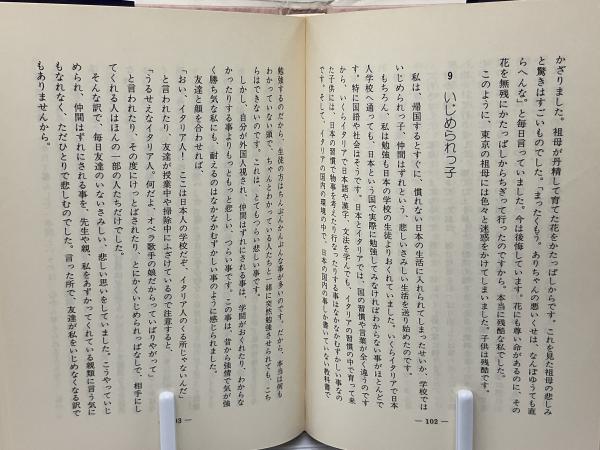 かざりました。祖母が丹精して育てた花をかたっぱしからです。これを見た祖母の悲しみ
と驚きはすごいものでした。「まったくもう。ありちゃんの悪いくせは、なんぼゆうても直
らへんな」と毎日言っていました。今は後悔しています。花にも尊い命があるのに、その
花を無残にかたっぱしからちぎって行ったのですから。本当に残酷な私でした。子供は残酷です。
このように、東京の祖母には色々と迷惑をかけてしまいました。
9 いじめられっ子
私は、帰国するとすぐに、慣れない日本の生活に入れられてしまったせいか、学校では
いじめられっ子、仲間はずれという、悲しいさみしい生活を送り始めたのです。
もちろん、私は勉強も日本の学校の生徒よりおくれていました。いくらイタリアで日本
人学校へ通っても、日本という国で実際に勉強してみなければわからない事がほとんどで
す。特に国語や社会はそうです。日本とイタリアでは、国の習慣や言葉が全く違うのです
から、いくらイタリアで日本語や漢字、文法を学んでも、イタリアの習慣の中で育って来
た子供には、日本の習慣で物事を考えたり行なったりする事はなかなかむずかしい事なの
です。そして、イタリアの国内の環境の中で、日本の国内の事しか書いていない教科書で
— 102 —
勉強するのだから、生徒の方はちんぷんかんぷんな事が多いのです。だから、本当は何も
わかっていない頭で、ちゃんとわかっている人たちと一緒に突然勉強させられても、こち
らはできないのです。これは、とてもつらい悲しい事です。
しかし、自分が外国人視され、仲間はずれにされる事は、学問がおくれたり、わからな
かったりする事よりもっともっと悲しい、つらい事です。この事は、昔から強情で気が強
く勝ち気な私にも、耐えるのはなかなかむずかしい事のように感じられました。
友達と顔を合わせれば、
「おい、イタリア人！ ここは日本人の学校だぞ、イタリア人のくる所じゃないんだ」
と言われたり、友達が授業中や掃除中にふざけているので注意すると、
「うるせえなイタリア人。何だよ、オペラ歌手の娘だからっていばりやがって」
と言われたり、その度にけっとばされたり、とにかくいじめられっぱなしで、相手にし
てくれる人はほんの一部の人たちだけでした。
そんな訳で、毎日友達のいないさみしい、悲しい思いをしていました。こうやっていじ
められ、仲間はずれにされる事を、先生や親、私をあずかってくれている親類に言う気に
もなれなく、ただひとりで悲しむのでした。言った所で、友達が私をいじめなくなる訳で
もありませんから。
03 —